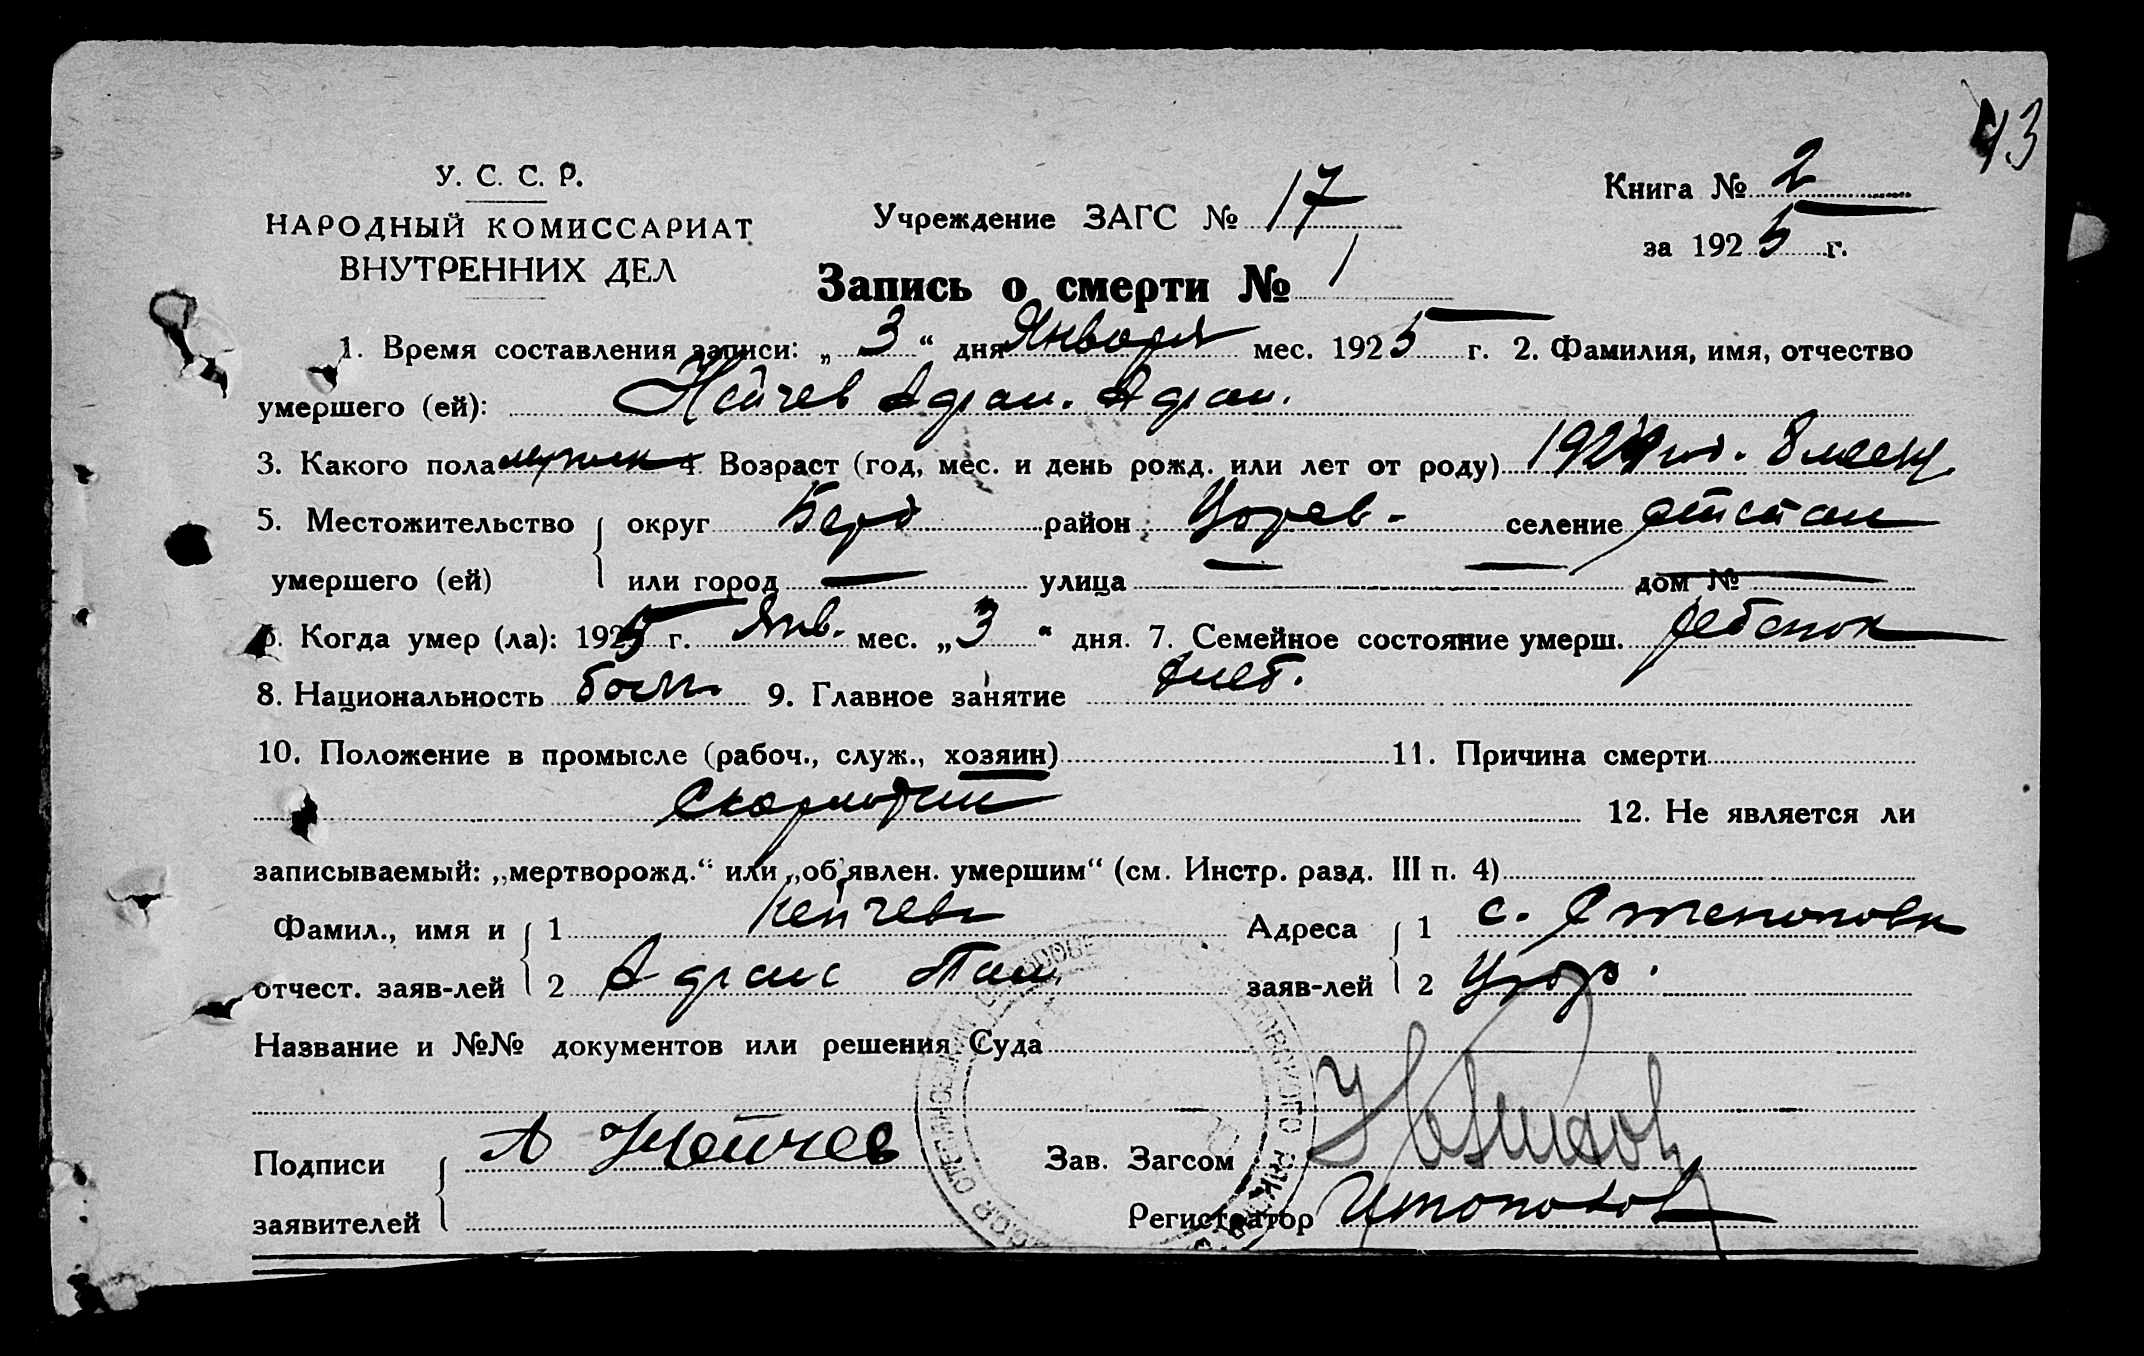 43
У. С. С. Р.
НАРОДНЫЙ КОМИССАРИАТ
ВНУТРЕННИХ ДЕЛ
Учреждение ЗАГС № 17
Книга № 2
за 1925 г.
Запись о смерти № 1
1. Время составления записи: „ 3 “ дня Января мес. 1925 г. 2. Фамилия, имя, отчество
умершего (ей): Кейчев
3. Какого пола мужск 4. Возраст (год, мес. и день рожд. или лет от роду) 1924 год. 8 месяц
5. Местожительство округ Берд район Цорев- селение
умершего (ей) или город — улица — — дом № —
6. Когда умер (ла): 1925 г. Янв. мес. „ 3 “ дня. 7. Семейное состояние умерш. ребенок
8. Национальность болг. 9. Главное занятие хлеб.
10. Положение в промысле (рабоч., служ., хозяин) 11. Причина смерти
Скарлотин 12. Не является ли
записываемый: „мертворожд.“ или „об‛явлен. умершим“ (см. Инстр. разд. III п. 4)
Фамил., имя и 1 Кейчев Адреса 1 с.
отчест. заяв-лей 2 заяв-лей 2 Цор.
Название и №№ документов или решения Суда
Подписи А Кейчев Зав. Загсом
заявителей Регистратор